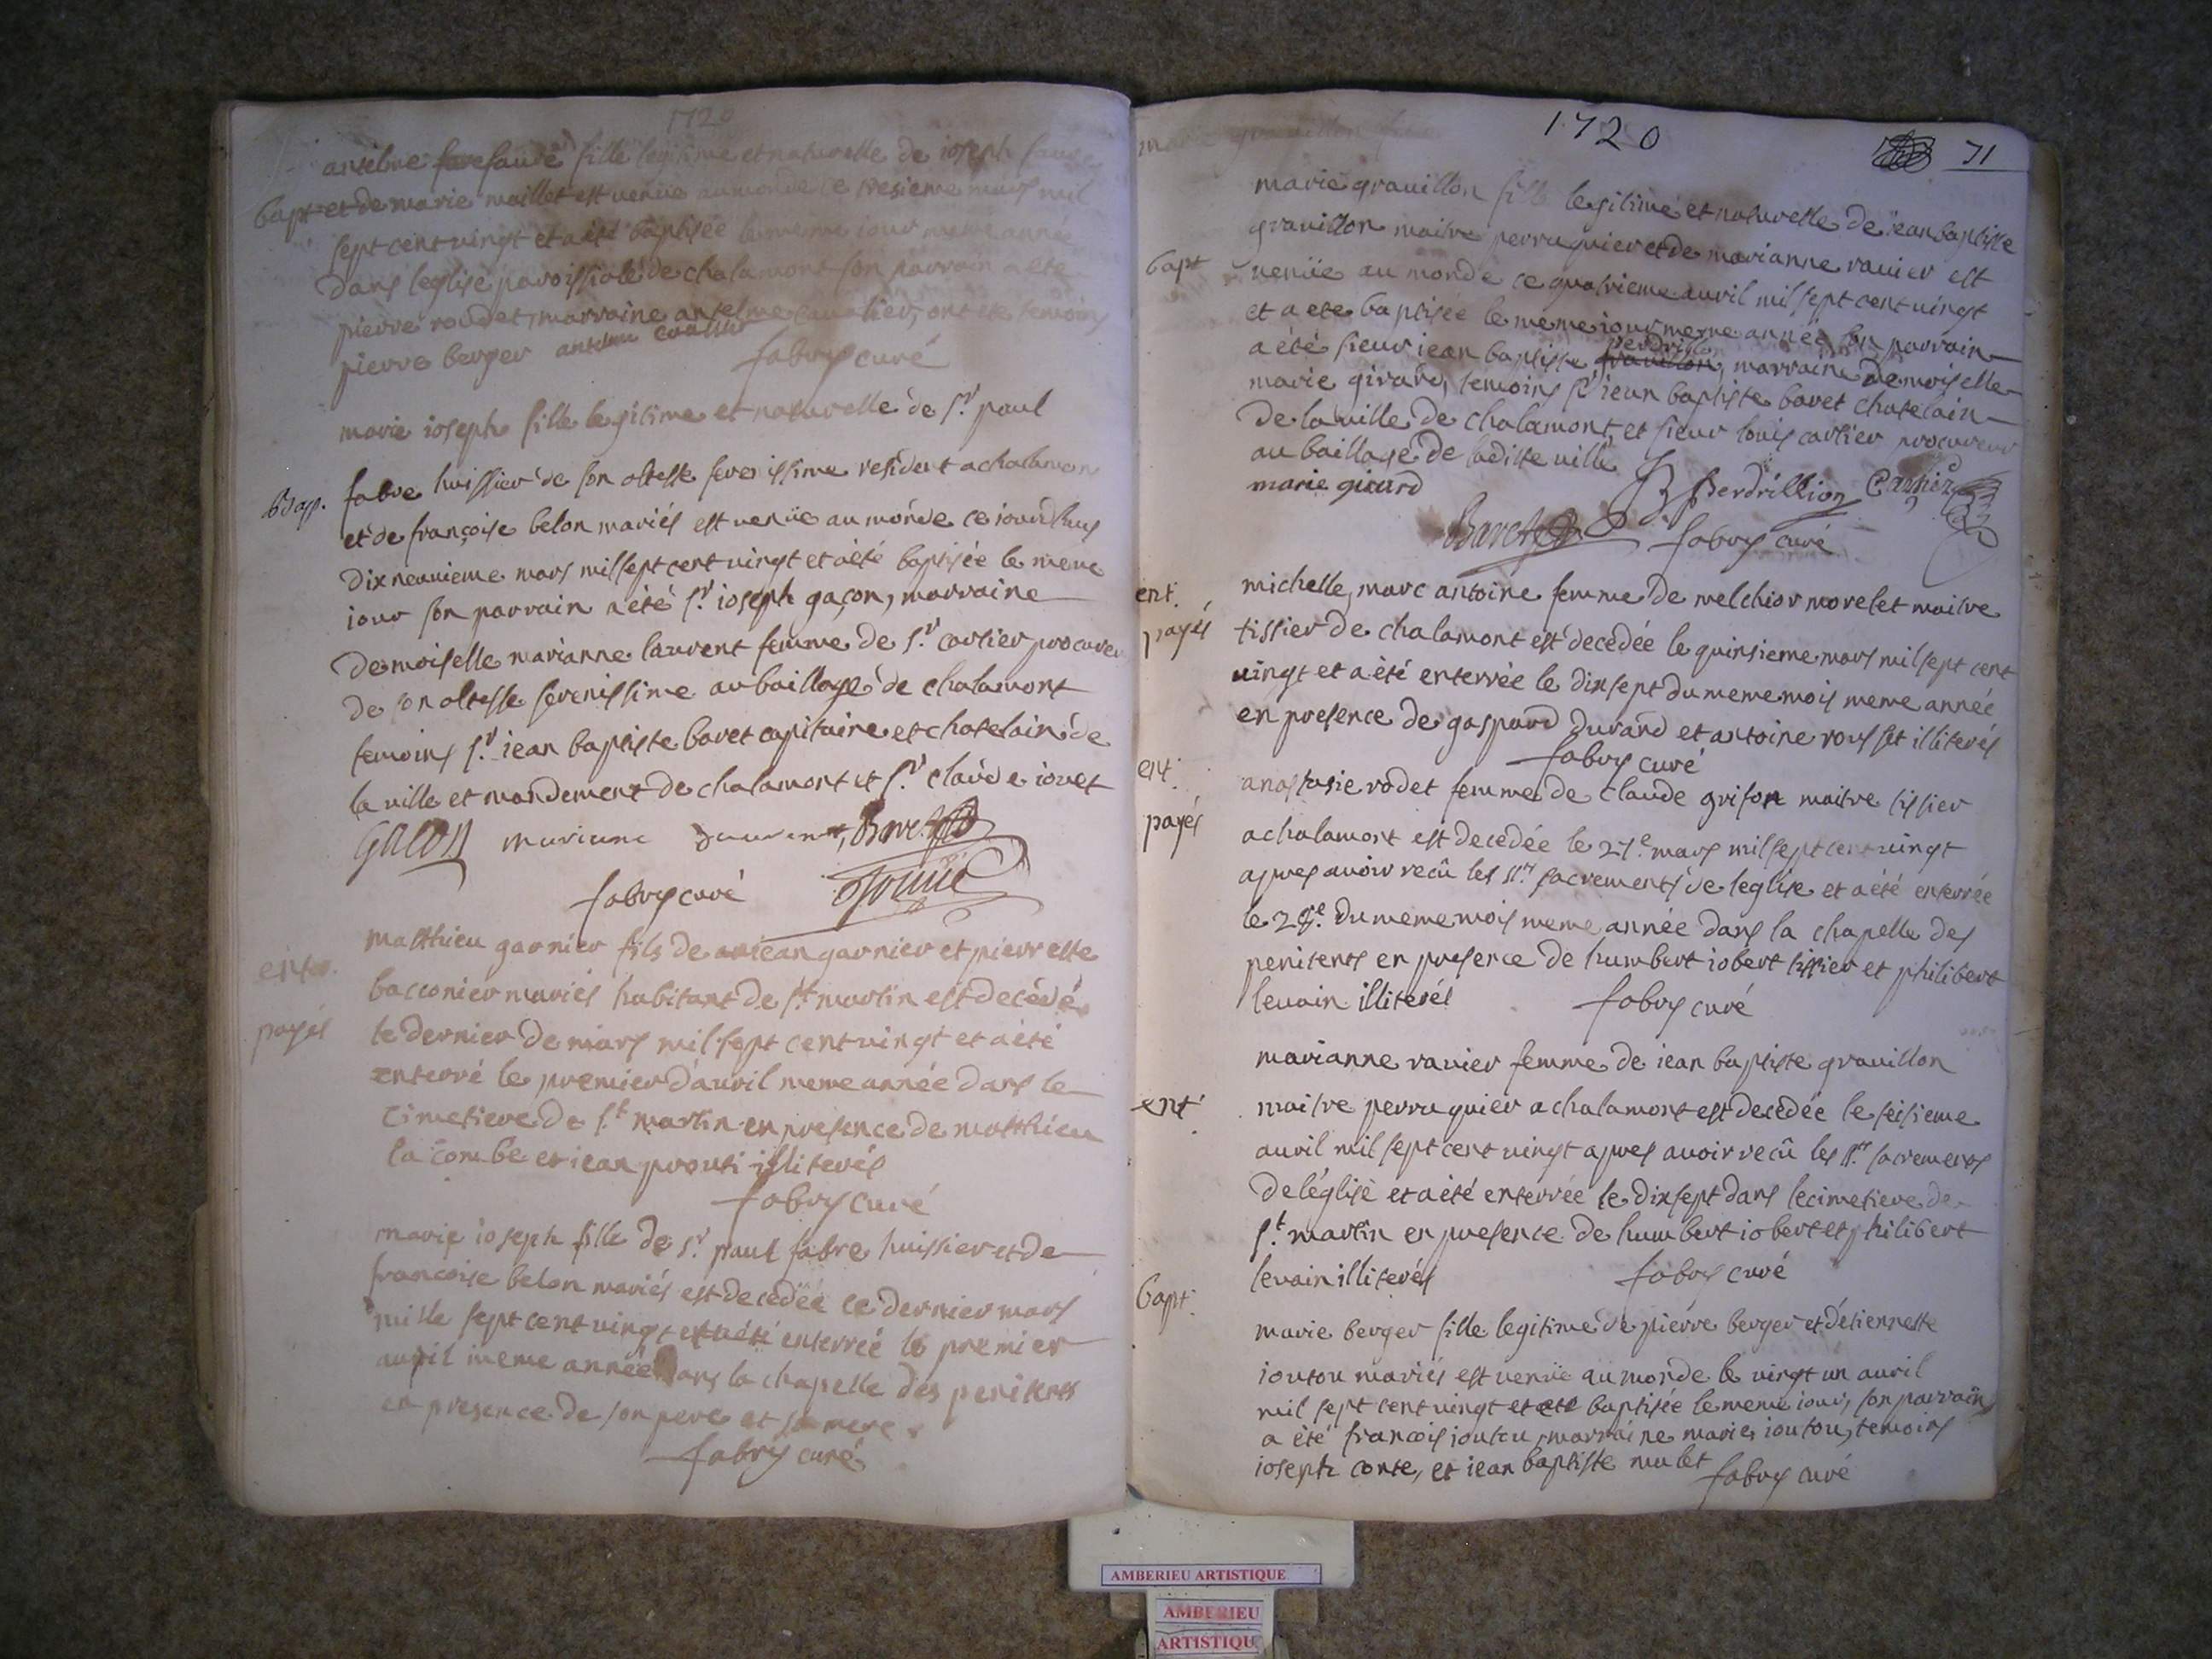 1720
anselme faure fille legitime et naturelle de ioseph faure
bapt et de marie maillet est venüe au monde ce tresieme mars mil
sept cent vingt et a été baptisée le meme iour meme année
dans leglise paroissiale de chalamont son parrain a ete
pierre roudet, marraine anselme cavalier, ont ete temoins
pierre berger
fabry curé
marie ioseph fille legitime et naturelle de sr. paul
bap. fabre huissier de son altesse serenissime resident a chalamon
et de françoise belon mariés est venüe au monde ce iourdhuy
dix neuvieme mars mil sept cent vingt et a été baptisée le meme
iour son parrain a été sr. ioseph gaçon, marraine
demoiselle marianne laurent femme de sr. carlier procureu
de son altesse serenissime au baillage de chalamont
temoins sr. iean baptiste baret capitaine et chatelain de
la ville et mandement de chalamont et sr. claude iouet
GACON mariane Laurent, Baret
fabry curé
matthieu garnier fils de iean garnier et pierrette
ent.
bacconier mariés habitant de st. martin est decedé
payés
le dernier de mars mil sept cent vingt et a été
enterré le premier d'avril meme année dans le
cimetiere de st. martin en presence de matthieu
la combe et iean prouti illiterés
fabry curé
marie ioseph fille de sr. paul fabre huissier et de
francoise belon mariés est decedée ce dernier mars
mille sept cent vingt et a été enterreé le premier
avril meme année dans la chapelle des penitents
en presence de son pere et sa mere.
fabry curé
1720
71
marie gravillon fille legitime et naturelle de iean baptiste
gravillon maitre perruquier et de marianne ravier est
bapt
venüe au monde ce quatrieme avril mil sept cent vingt
et a ete baptisée le meme iour meme année son parrain
a été sieur iean baptiste perdrillon, marraine demoiselle
marie girard, temoins sr iean baptiste baret chatelain
de la ville de chalamont, et sieur louis carlier procureur
au baillage de ladite ville
marie girard
Perdrillion Carlier
Baret
fabry curé
ent.
michelle marc antoine femme de melchior morelet maitre
payés
tissier de chalamont est decedée le quinsieme mars mil sept cent
vingt et a été enterrée le dixsept du meme mois meme année
en presence de gaspard durand et antoine rousset illiterés
fabry curé
ent.
anastasie rodet femme de claude grison maitre tissier
payés
a chalamont est decedée le 27e. mars mil sept cent vingt
apres avoir recû les sts. sacrements de leglise et a été enterrée
le 28e. du meme mois meme année dans la chapelle des
penitents en presence de humbert iobert tissier et philibert
levain illiterés
fabry curé
marianne ravier femme de iean baptiste gravillon
ent.
maitre perruquier a chalamont est decedée le seisieme
avril mil sept cent vingt apres avoir recû les sts. sacrements
de léglise et a été enterrée le dixsept dans le cimetiere de
st. martin en presence de humbert iobert et philibert
levain illiterés
fabry curé
bapt.
marie berger fille legitime de pierre berger et d'etiennette
ioutou mariés est venüe au monde le vingt un avril
mil sept cent vingt et ete baptisée le meme iour, son parrain
a été francois ioutou, marraine marie ioutou, temoins
ioseph conte, et iean baptiste mulet
fabry curé
AMBERIEU ARTISTIQUE
AMBERIEU
ARTISTIQU